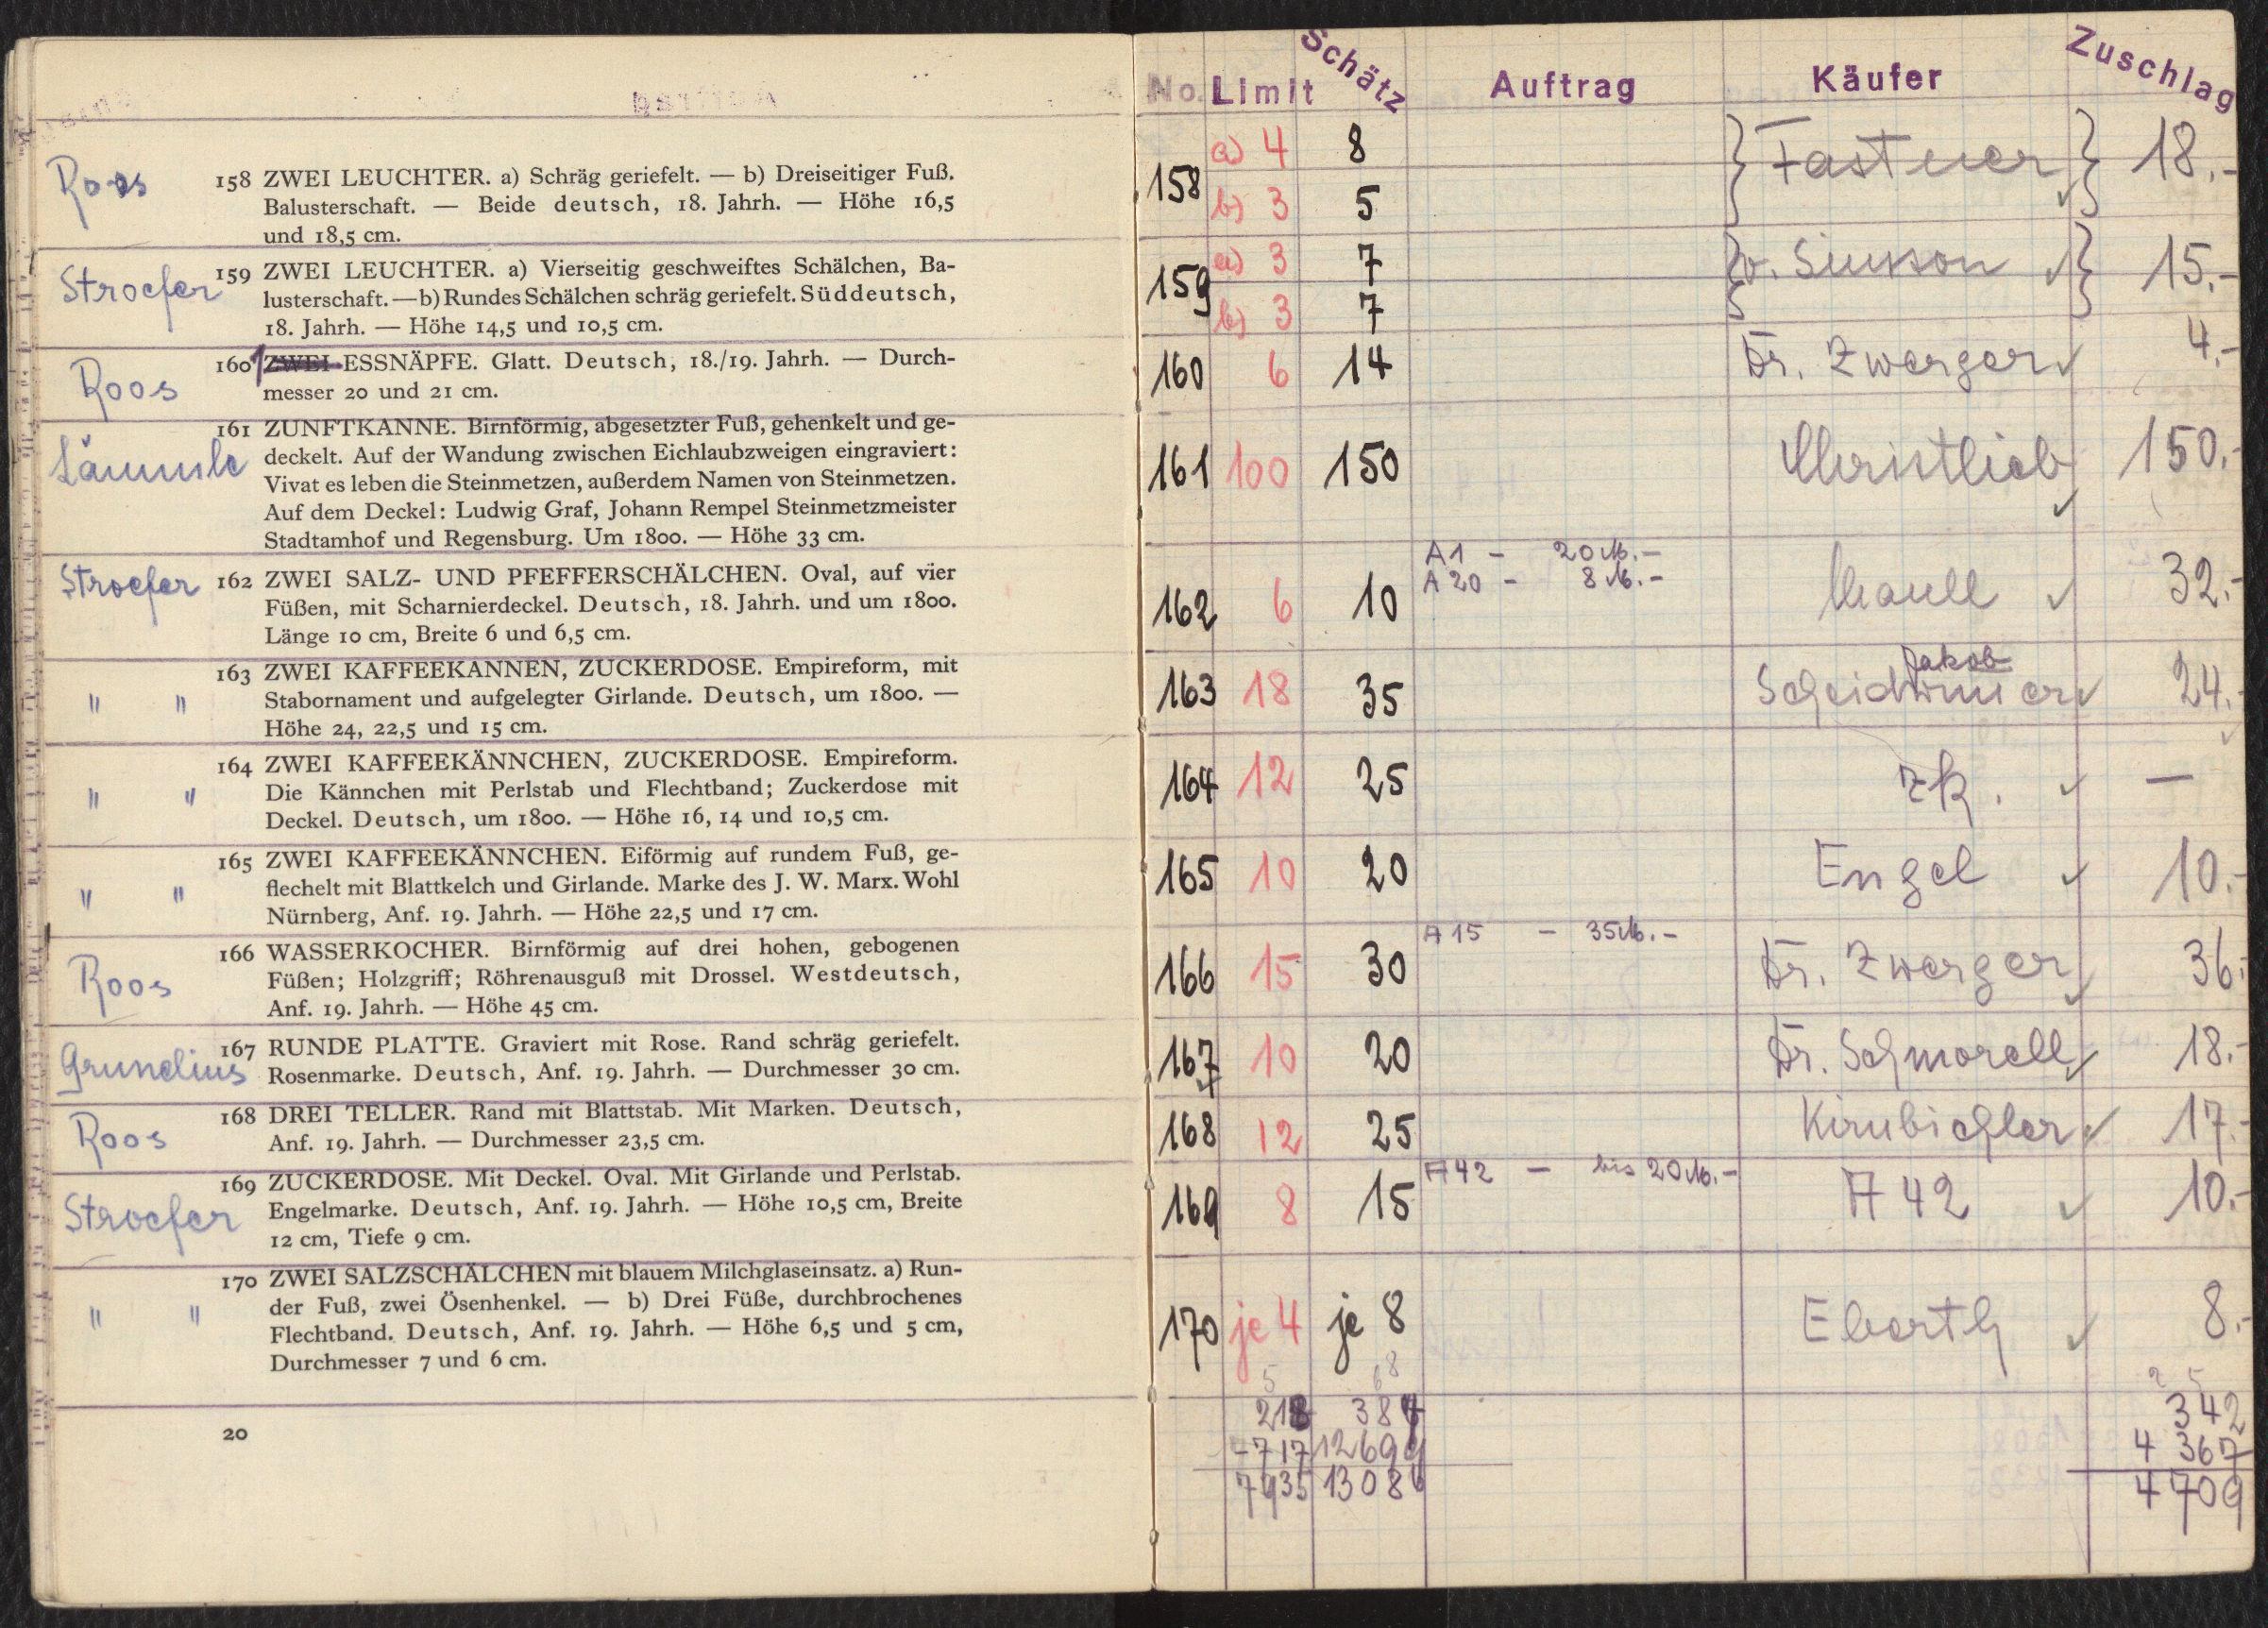 Roos
158 ZWEI LEUCHTER. a) Schräg geriefelt. — b) Dreiseitiger Fuß.
Balusterschaft. — Beide deutsch, 18. Jahrh. — Höhe 16,5
und 18,5 cm.
Stroefer
159 ZWEI LEUCHTER. a) Vierseitig geschweiftes Schälchen, Ba-
lusterschaft. — b) Rundes Schälchen schräg geriefelt. Süddeutsch,
18. Jahrh. — Höhe 14,5 und 10,5 cm.
Roos
160 1 ZWEI ESSNÄPFE. Glatt. Deutsch, 18./19. Jahrh. — Durch-
messer 20 und 21 cm.
Lämmle
161 ZUNFTKANNE. Birnförmig, abgesetzter Fuß, gehenkelt und ge-
deckelt. Auf der Wandung zwischen Eichlaubzweigen eingraviert:
Vivat es leben die Steinmetzen, außerdem Namen von Steinmetzen.
Auf dem Deckel: Ludwig Graf, Johann Rempel Steinmetzmeister
Stadtamhof und Regensburg. Um 1800. — Höhe 33 cm.
Stroefer
162 ZWEI SALZ- UND PFEFFERSCHÄLCHEN. Oval, auf vier
Füßen, mit Scharnierdeckel. Deutsch, 18. Jahrh. und um 1800.
Länge 10 cm, Breite 6 und 6,5 cm.
" "
163 ZWEI KAFFEEKANNEN, ZUCKERDOSE. Empireform, mit
Stabornament und aufgelegter Girlande. Deutsch, um 1800. —
Höhe 24, 22,5 und 15 cm.
" "
164 ZWEI KAFFEEKÄNNCHEN, ZUCKERDOSE. Empireform.
Die Kännchen mit Perlstab und Flechtband; Zuckerdose mit
Deckel. Deutsch, um 1800. — Höhe 16, 14 und 10,5 cm.
" "
165 ZWEI KAFFEEKÄNNCHEN. Eiförmig auf rundem Fuß, ge-
flechelt mit Blattkelch und Girlande. Marke des J. W. Marx. Wohl
Nürnberg, Anf. 19. Jahrh. — Höhe 22,5 und 17 cm.
Roos
166 WASSERKOCHER. Birnförmig auf drei hohen, gebogenen
Füßen; Holzgriff; Röhrenausguß mit Drossel. Westdeutsch,
Anf. 19. Jahrh. — Höhe 45 cm.
Grunelius
167 RUNDE PLATTE. Graviert mit Rose. Rand schräg geriefelt.
Rosenmarke. Deutsch, Anf. 19. Jahrh. — Durchmesser 30 cm.
Roos
168 DREI TELLER. Rand mit Blattstab. Mit Marken. Deutsch,
Anf. 19. Jahrh. — Durchmesser 23,5 cm.
Stroefer
169 ZUCKERDOSE. Mit Deckel. Oval. Mit Girlande und Perlstab.
Engelmarke. Deutsch, Anf. 19. Jahrh. — Höhe 10,5 cm, Breite
12 cm, Tiefe 9 cm.
" "
170 ZWEI SALZSCHÄLCHEN mit blauem Milchglaseinsatz. a) Run-
der Fuß, zwei Ösenhenkel. — b) Drei Füße, durchbrochenes
Flechtband. Deutsch, Anf. 19. Jahrh. — Höhe 6,5 und 5 cm,
Durchmesser 7 und 6 cm.
20
No. Limit Schätz Auftrag Käufer Zuschlag
158 a) 4 8 Fastner 18.-
b) 3 5
159 a) 3 7 v. Simson 15.-
b) 3 7
160 6 14 Dr. Zwerger 4.-
161 100 150 Christlieb 150.-
A1 - 20 M.-
A20 - 8 M.-
162 6 10 32.-
Jakob
163 18 35 24.-
164 12 25 zk. —
165 10 20 Engel 10.-
A15 - 35 M.-
166 15 30 Dr. Zwerger 36.-
167 10 20 Dr. Schmorell 18.-
168 12 25 Kirnbichler 17.-
A42 - bis 20 M.-
169 8 15 A 42 10.-
170 je 4 je 8 Eberth 8.-
342
4 367
4 709